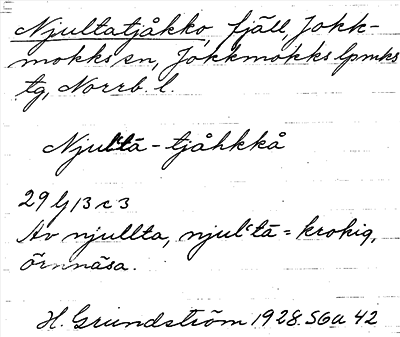 Njultatjåkko, fjäll, Jokk-
mokks sn, Jokkmokks lpmks
tg, Norrb. l.
Njul'tā - tjåhkkå
29 13 c 3
Av njullta, njul'tā = krokig,
örnnäsa.
H. Grundström 1928. SGU 42